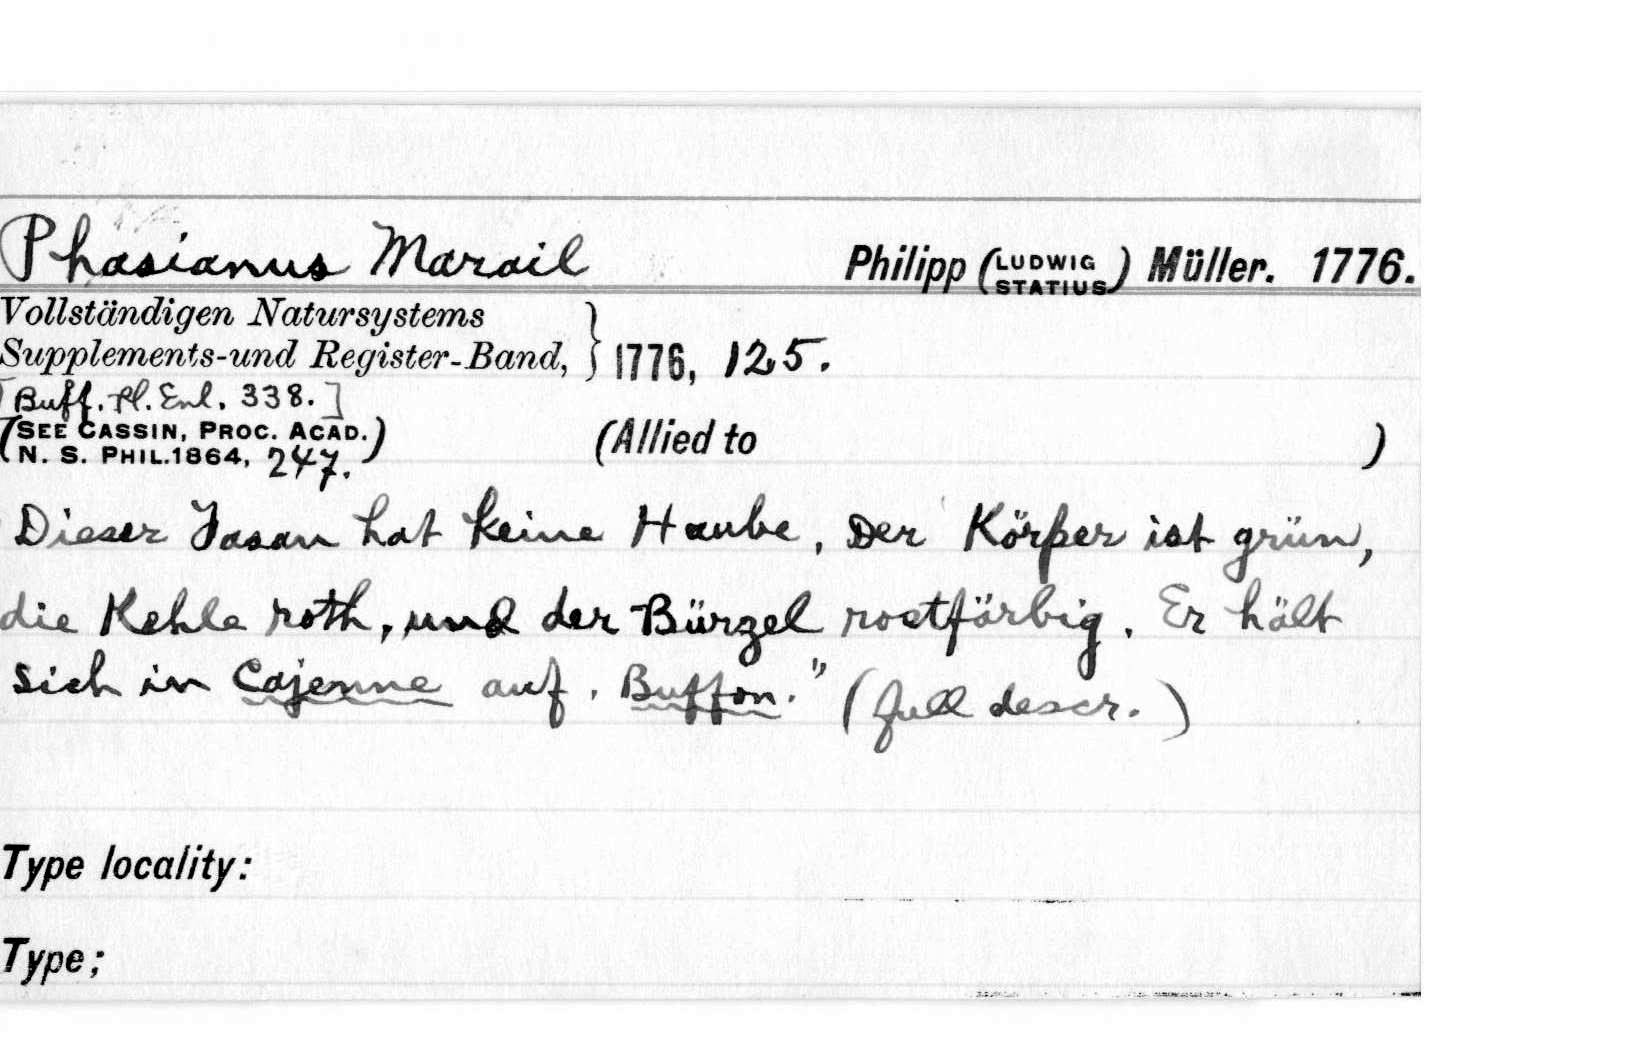 Phasianus Marail Philipp (LUDWIG STATIUS) Müller. 1776.
Vollständigen Natursystems
Supplements-und Register-Band, } 1776, 125.
[Buff. Pl. Enl. 338.]
(SEE CASSIN, PROC. ACAD.
N. S. PHIL. 1864, 247.) (Allied to )
Dieser Fasan hat keine Haube, Der Körper ist grün,
die Kehle roth, und der Bürzel rostfärbig. Er hält
sich in Cajenne auf. Buffon." (full descr.)
Type locality:
Type;